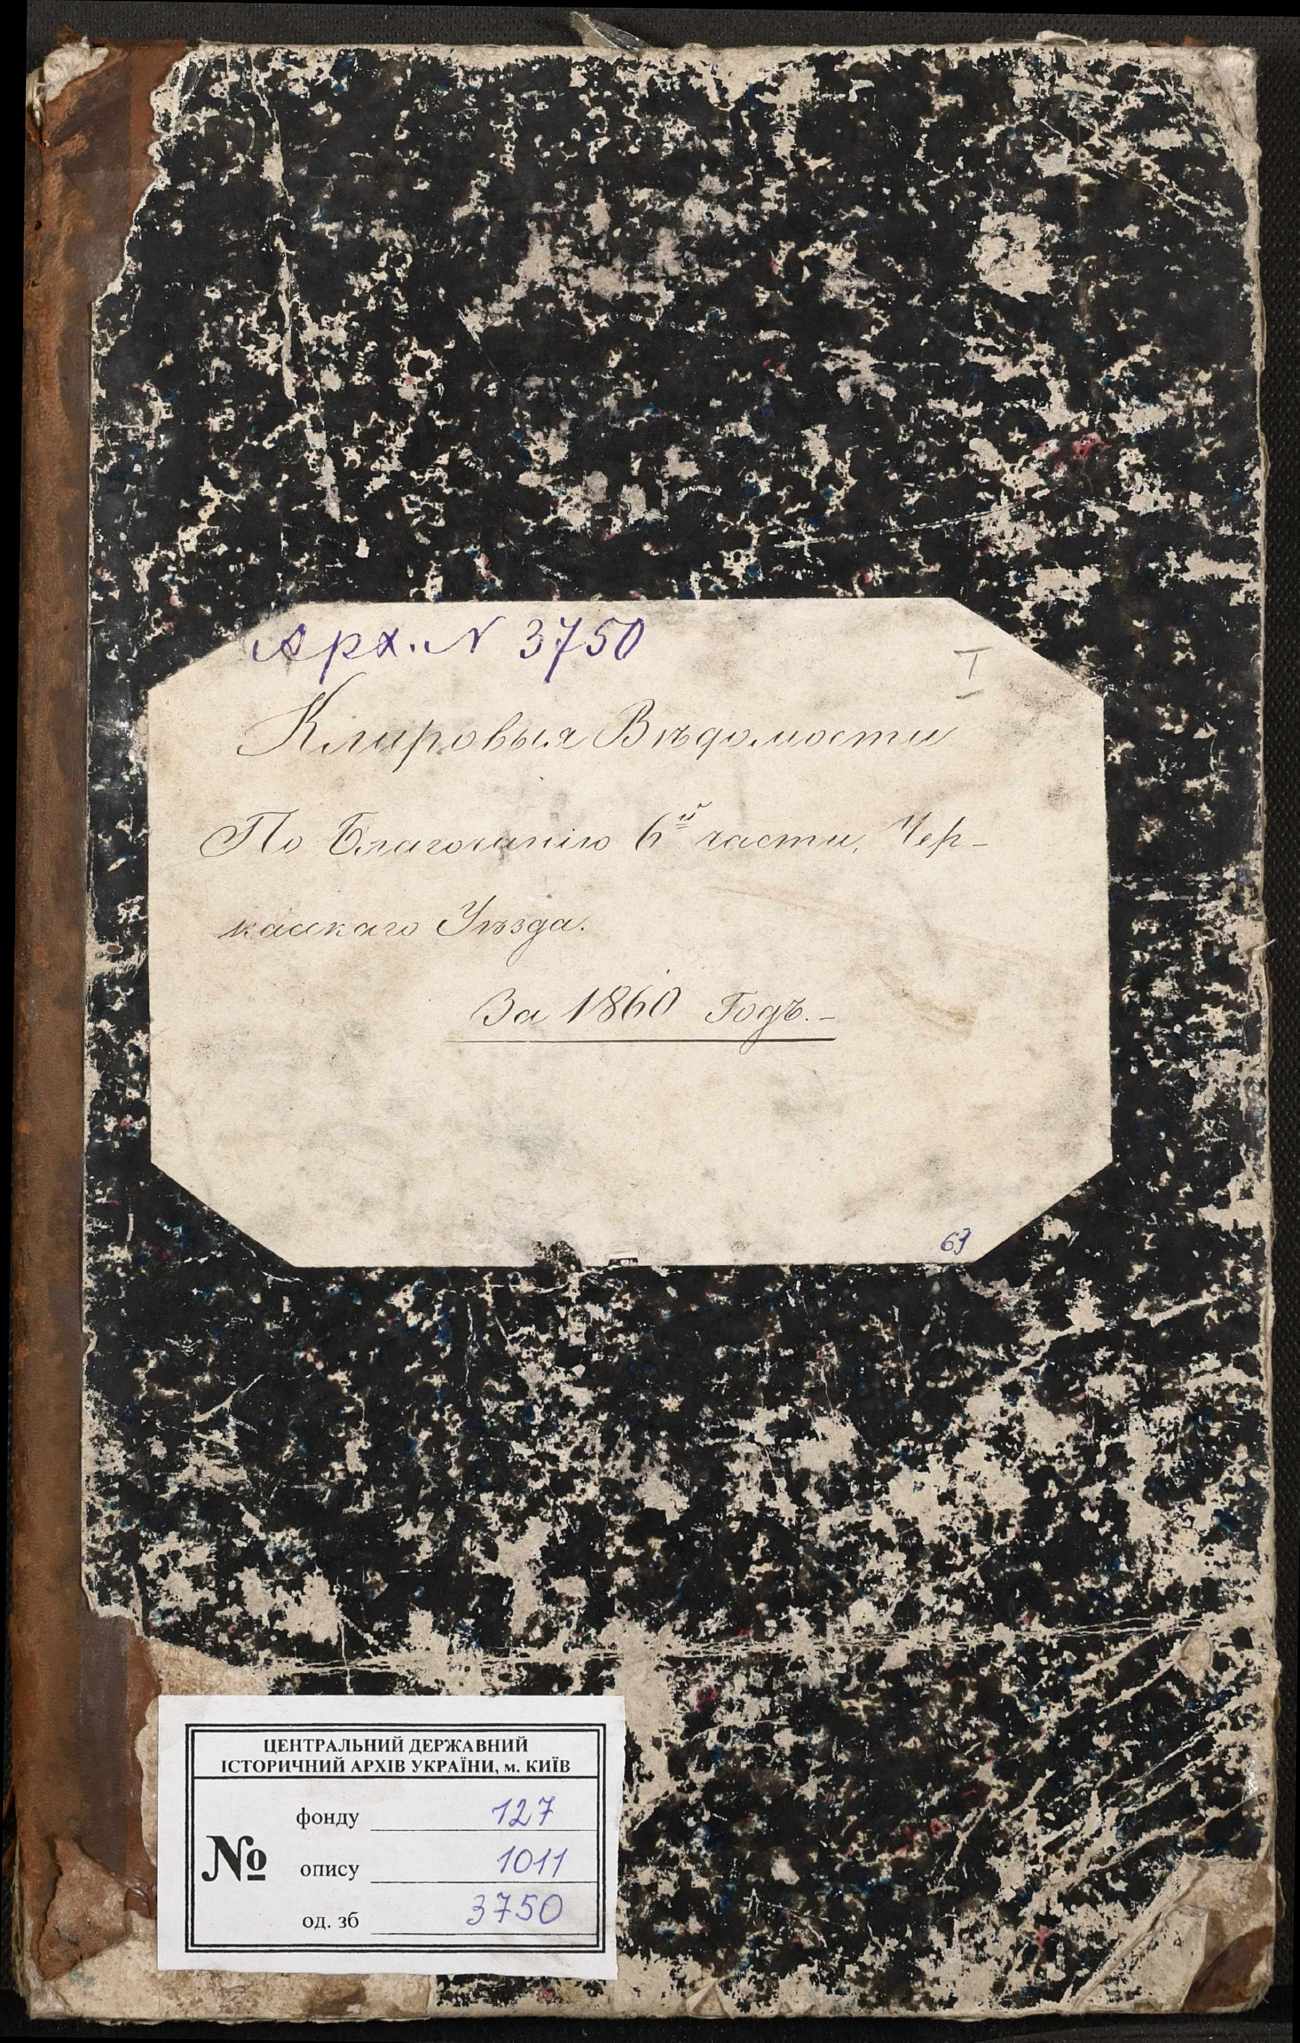 Арх. N 3750
I
Клировыя Вѣдомости
По Благочинію 6й части, Чер-
касскаго Уѣзда.
За 1860 Годъ.-
63
ЦЕНТРАЛЬНИЙ ДЕРЖАВНИЙ
ІСТОРИЧНИЙ АРХІВ УКРАЇНИ, м. КИЇВ
№
фонду 127
опису 1011
од. зб 3750